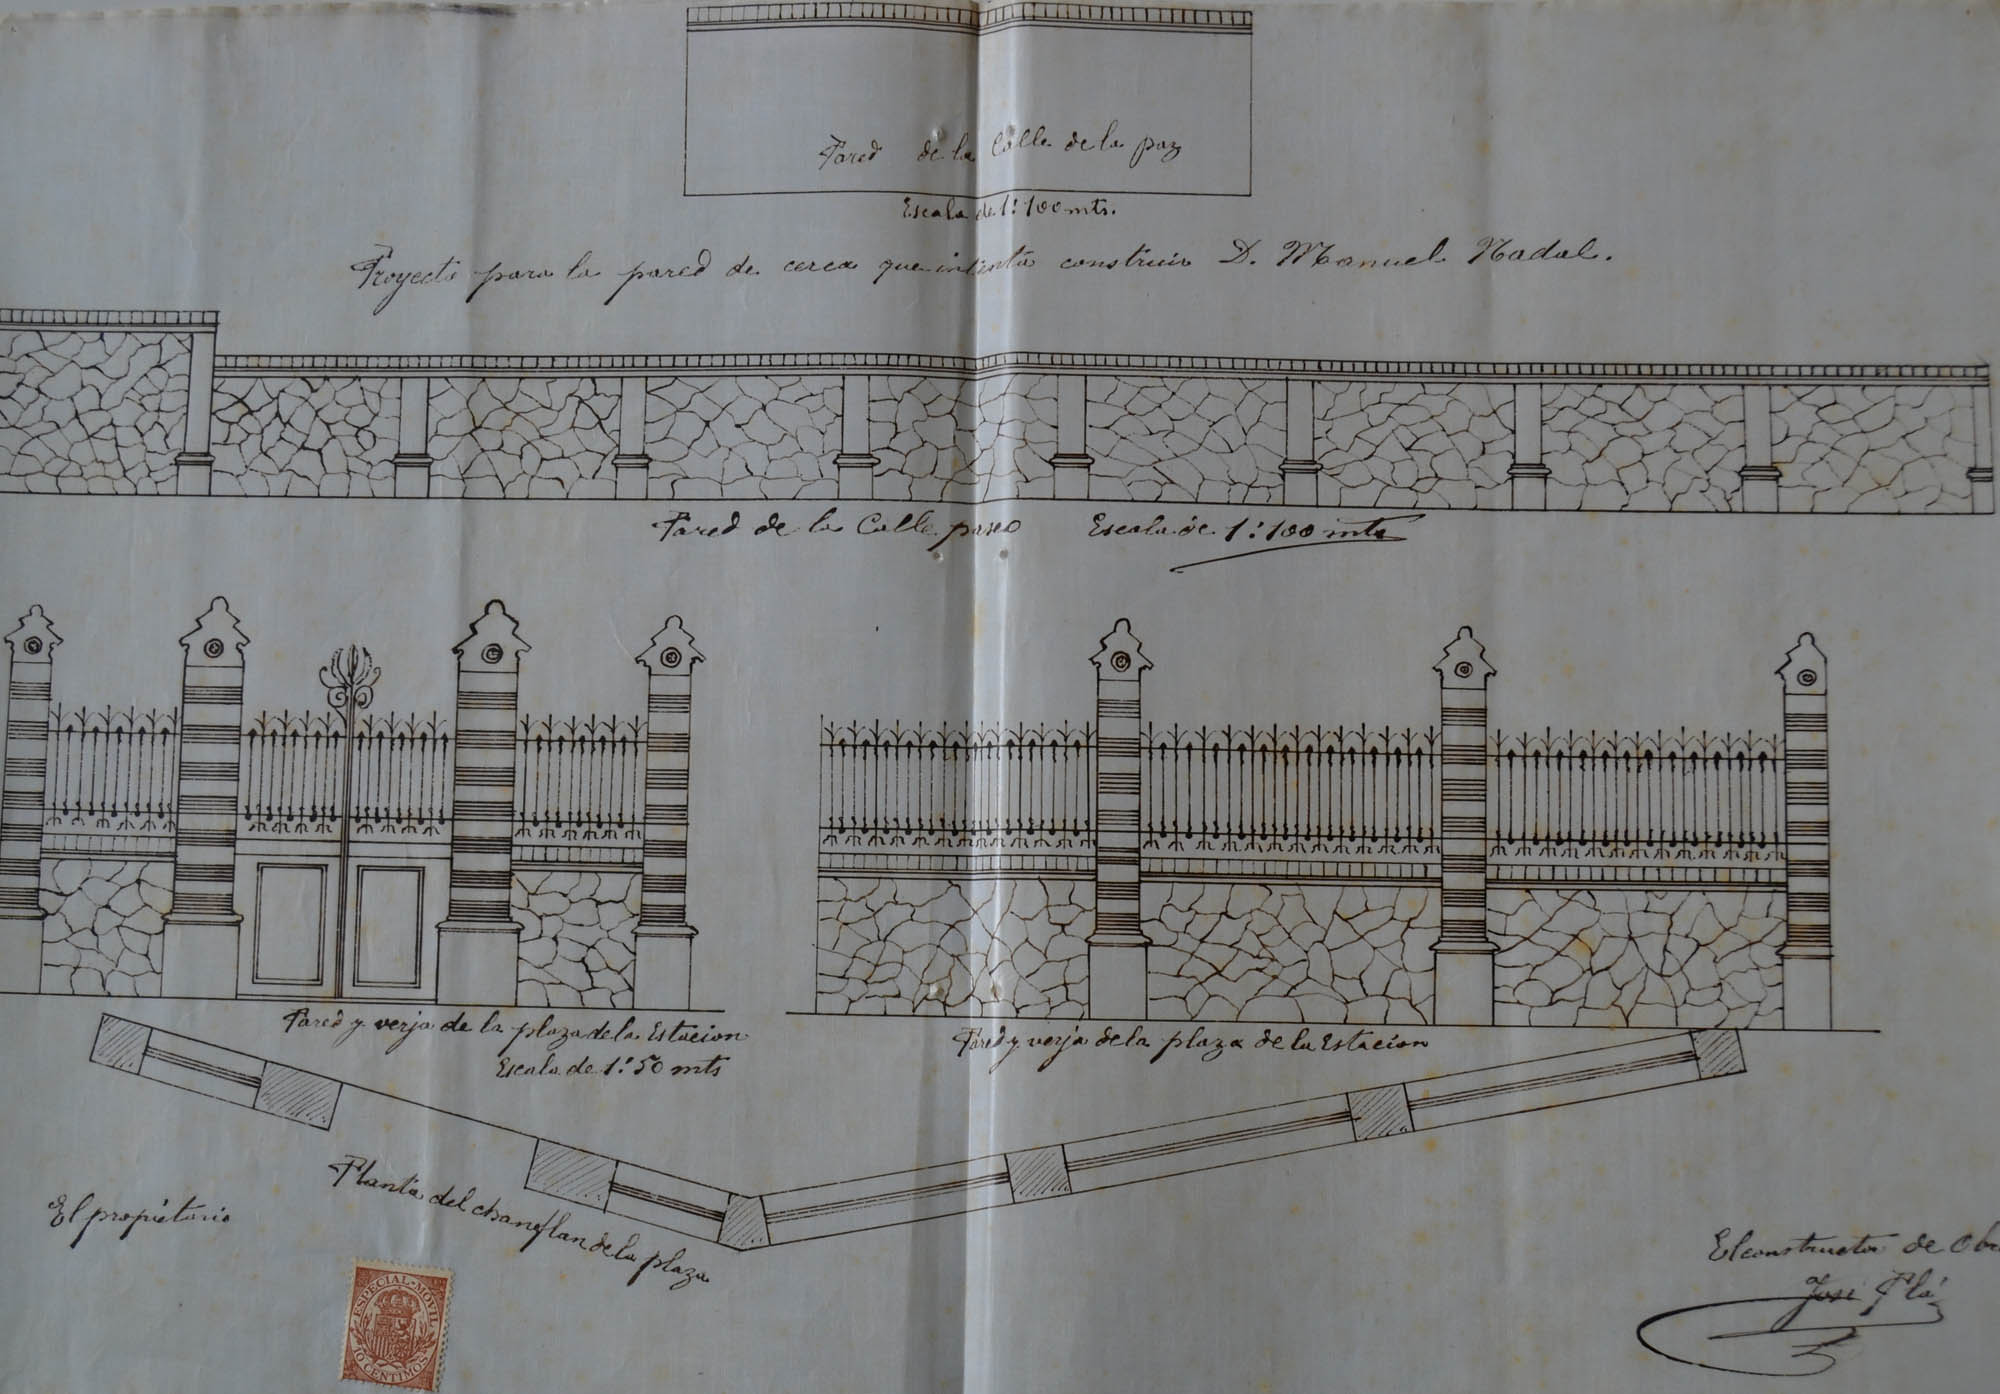 Pared de la Calle de la paz
Escala de 1:100 mts.
Proyecto para la pared de cerca que intenta construir D. Manuel Nadal.
Pared de la Calle paseo Escala de 1:100 mts
Pared y verja de la plaza de la Estacion
Escala de 1:50 mts
Pared y verja de la plaza de la Estacion
Planta del chaneflan de la plaza
El propietario
ESPECIAL MOVIL
10 CENTIMOS
El constructor de Ob
José Plá